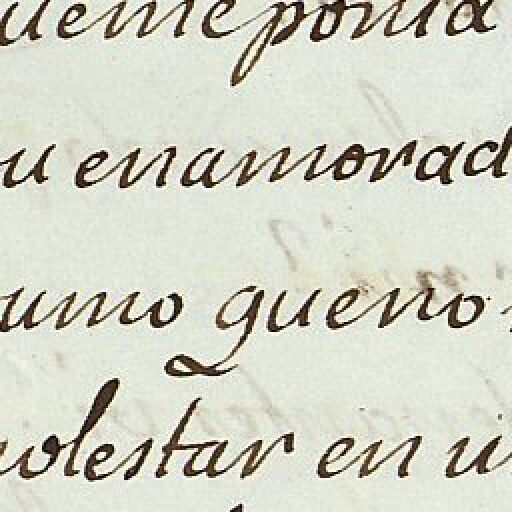 ueme ponia
u enamorad
umo queno
olestar en u